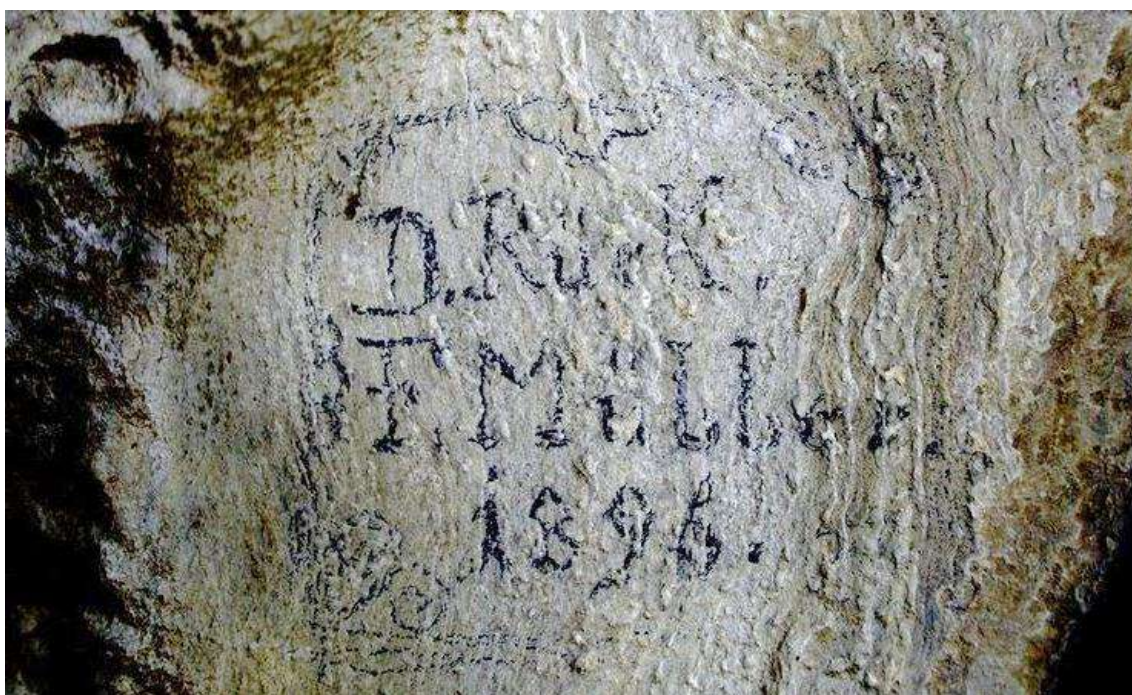 D. Rück.
F. Müller.
1896.